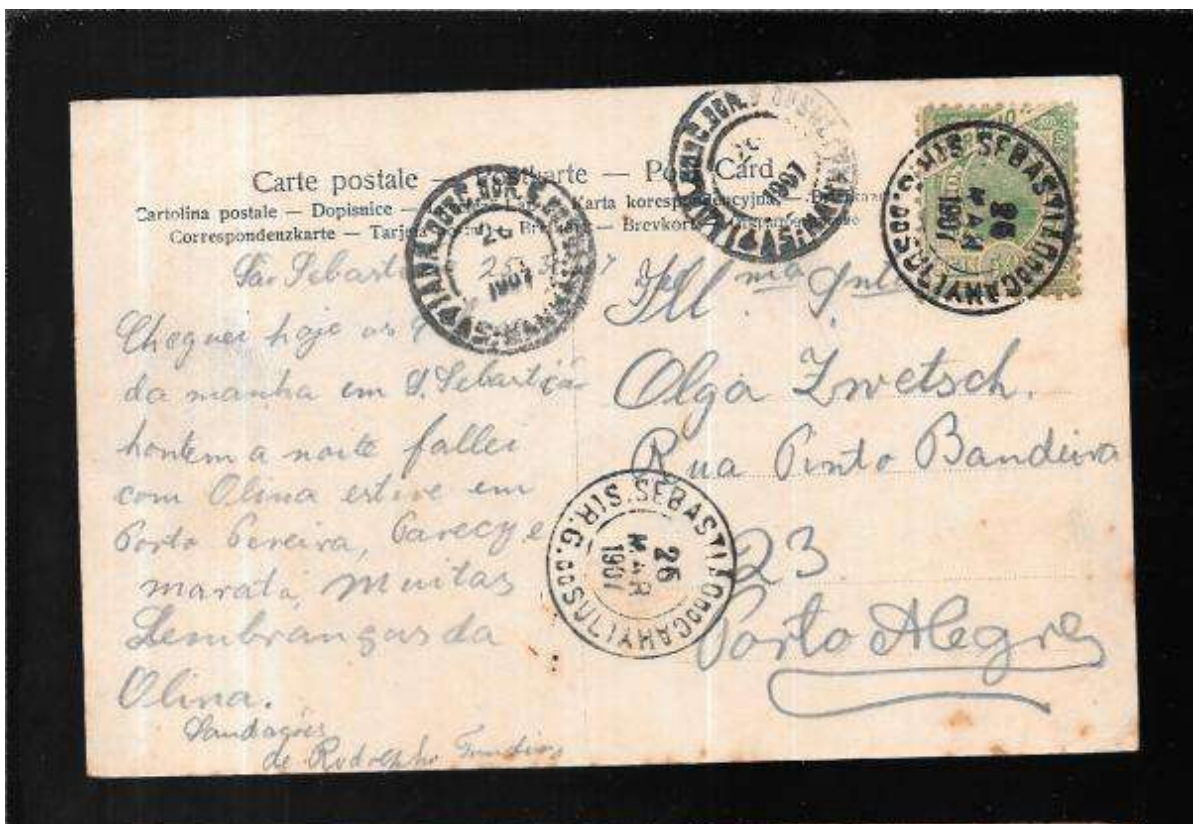 Carte postale — Postkarte — Post Card
Cartolina postale — Dopisnice — Karta korespondencyjna —
Correspondenzkarte — Tarjeta — Brevkort —
São Sebasti 25 3 7
Cheguei hoje as
da manha em S. Sebastião
hontem a noite fallei
com Olina estive em
Porto Pereira, Parecy e
maratá, Muitas
Lembranças da
Olina.
Saudações
de Rodolpho
Ill.ma
Olga Zwetsch.
Rua Pinto Bandeira
23
Porto Alegre
S. SEBASTIÃO DO CAHY (R.G. DO SUL)
26
MAR
1907
S. SEBASTIÃO DO CAHY (R.G. DO SUL)
26
MAR
1907
1907
1907